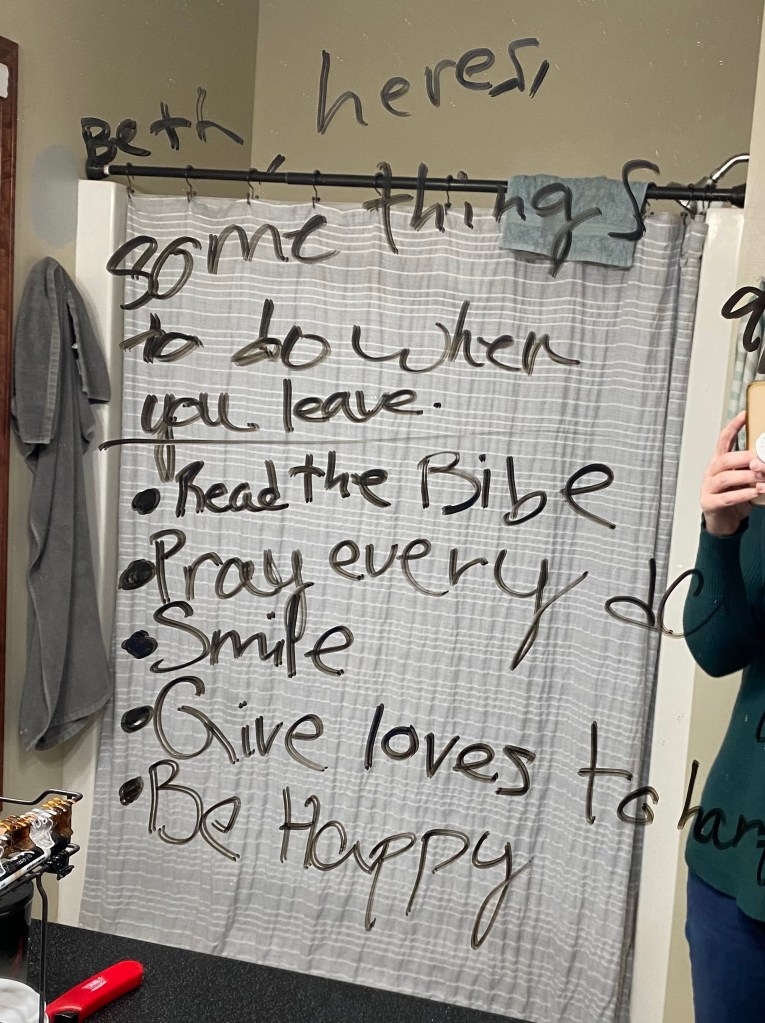 Beth, heres,
some things
to do when
you leave.
• Read the Bibe
• Pray every
• Smile
• Give loves to
• Be Happy